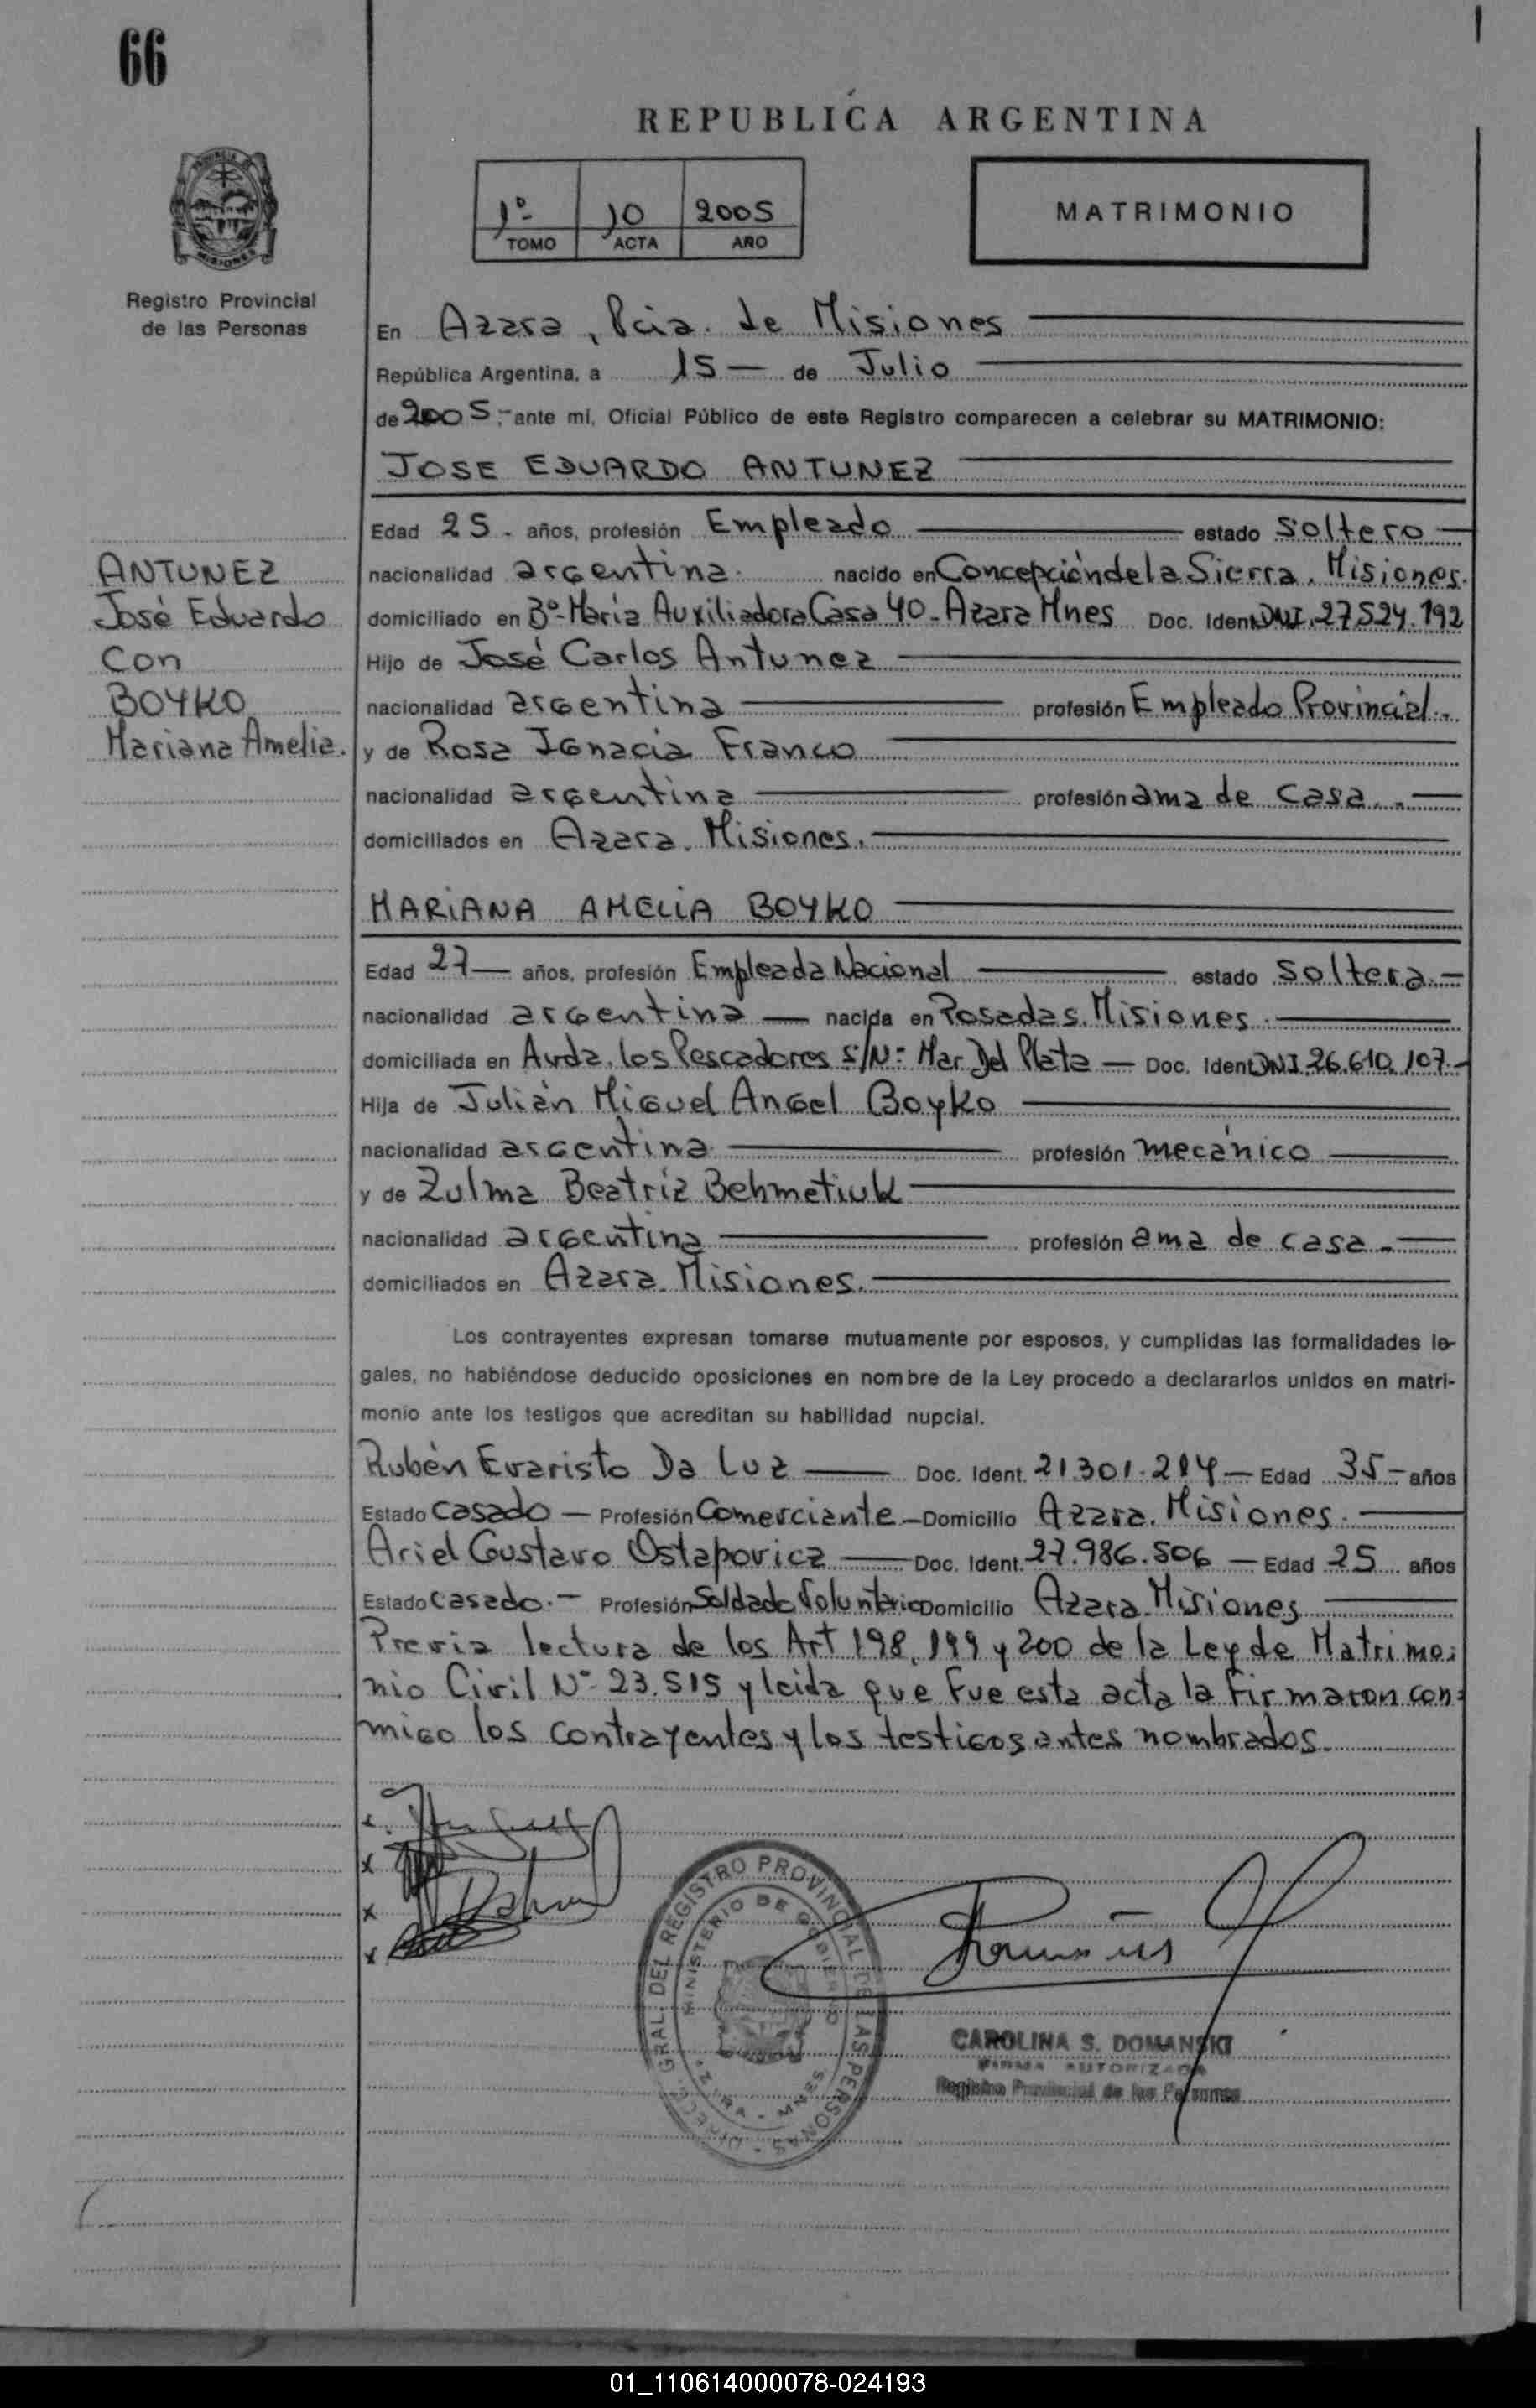 66
REPUBLICA ARGENTINA
1º 10 2005
TOMO ACTA AÑO
MATRIMONIO
PROVINCIA DE
MISIONES
Registro Provincial
de las Personas
En Azara, Pcia. de Misiones
República Argentina, a 15 — de Julio
de 2005.- ante mí, Oficial Público de este Registro comparecen a celebrar su MATRIMONIO:
JOSE EDUARDO ANTUNEZ
Edad 25. años, profesión Empleado estado soltero
nacionalidad argentina. nacido en Concepción de la Sierra. Misiones.
domiciliado en Bº- María Auxiliadora Casa 40- Azara Mnes Doc. Ident. DNI. 27.524.192
Hijo de José Carlos Antunez
nacionalidad argentina profesión Empleado Provincial.-
y de Rosa Ignacia Franco
nacionalidad argentina profesión ama de casa.-
domiciliados en Azara. Misiones.
ANTUNEZ
José Eduardo
Con
BOYKO
Mariana Amelia.
MARIANA AMELIA BOYKO
Edad 27 — años, profesión Empleada Nacional estado soltera.-
nacionalidad argentina — nacida en Posadas. Misiones.
domiciliada en Avda. los Pescadores S/Nº- Mar Del Plata — Doc. Ident DNI. 26.610.107.-
Hija de Julián Miguel Angel Boyko
nacionalidad argentina profesión mecánico
y de Zulma Beatriz Behmetiuk
nacionalidad argentina profesión ama de casa.-
domiciliados en Azara. Misiones.
Los contrayentes expresan tomarse mutuamente por esposos, y cumplidas las formalidades le-
gales, no habiéndose deducido oposiciones en nombre de la Ley procedo a declararlos unidos en matri-
monio ante los testigos que acreditan su habilidad nupcial.
Rubén Evaristo Da Luz — Doc. Ident. 21.301.214 — Edad 35.- años
Estado casado — Profesión Comerciante — Domicilio Azara. Misiones.
Ariel Gustavo Ostapovicz — Doc. Ident. 27.986.506 — Edad 25 años
Estado casado.- Profesión Soldado Voluntario Domicilio Azara. Misiones
Previa lectura de los Art 198, 199 y 200 de la Ley de Matrimo-
nio Civil Nº- 23.515 y leida que fue esta acta la firmaron con-
migo los contrayentes y los testigos antes nombrados.
x
x
x
x
DIRECC. GRAL. DEL REGISTRO PROVINCIAL DE LAS PERSONAS
MINISTERIO DE GOBIERNO
AZARA - MNES
CAROLINA S. DOMANSKI
FIRMA AUTORIZADA
Registro Provincial de las Personas
01_110614000078-024193